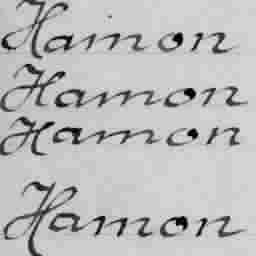 Hamon
Hamon
Hamon
Hamon